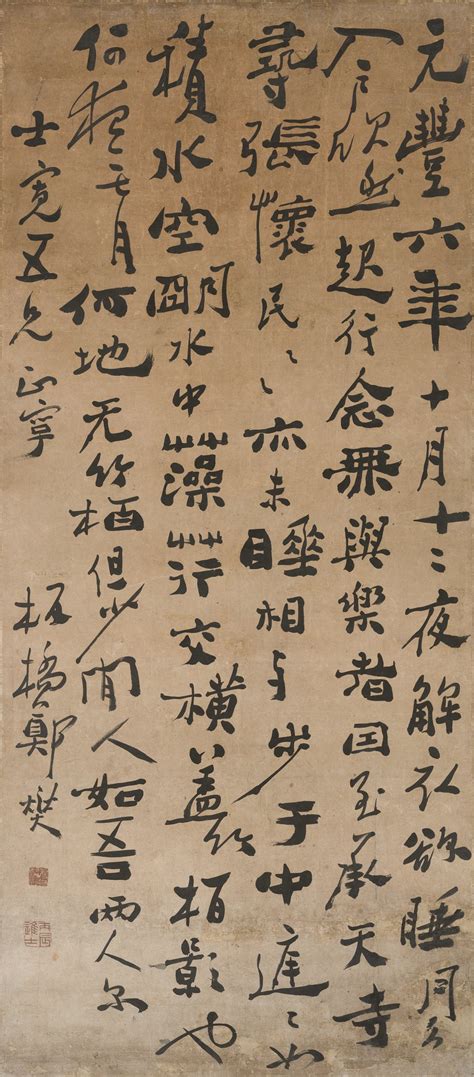 元豐六年十月十二夜解衣欲睡月色
入户欣然起行念無與樂者囙至承天寺
尋張懷民〻亦未睡相与步于中庭〻如
積水空朙水中藻荇交橫蓋竹柏影也
何夜无月何地无竹柏但少閒人如吾兩人尔
士寬五兄正寧
板橋鄭燮
丙辰進士